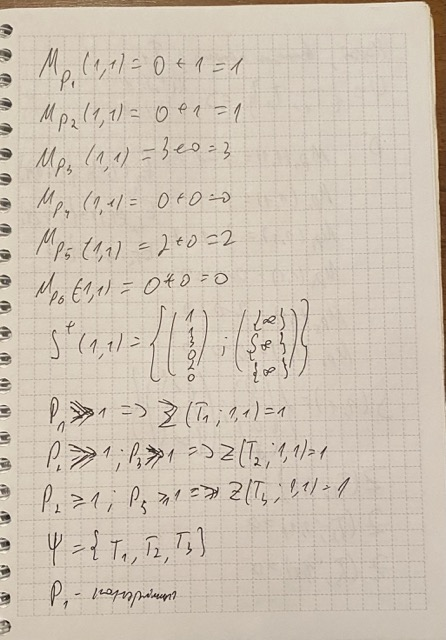 M_P₁ (1,1) = 0 + 1 = 1
M_P₂ (1,1) = 0 + 1 = 1
M_P₃ (1,1) = 3 + 0 = 3
M_P₄ (1,1) = 0 + 0 = 0
M_P₅ (1,1) = 2 + 0 = 2
M_P₆ (1,1) = 0 + 0 = 0
S⁺ (1,1) = { ( 1 1 3 0 2 0 ) ; ( {∞} {∞} {∞} ) }
P₁ ≥ 1 => Z(T₁; 1,1) = 1
P₂ ≥ 1 ; P₃ ≥ 1 => Z(T₂; 1,1) = 1
P₂ ≥ 1 ; P₅ ≥ 1 => Z(T₃; 1,1) = 1
Ψ = { T₁, T₂, T₃ }
P₁ -